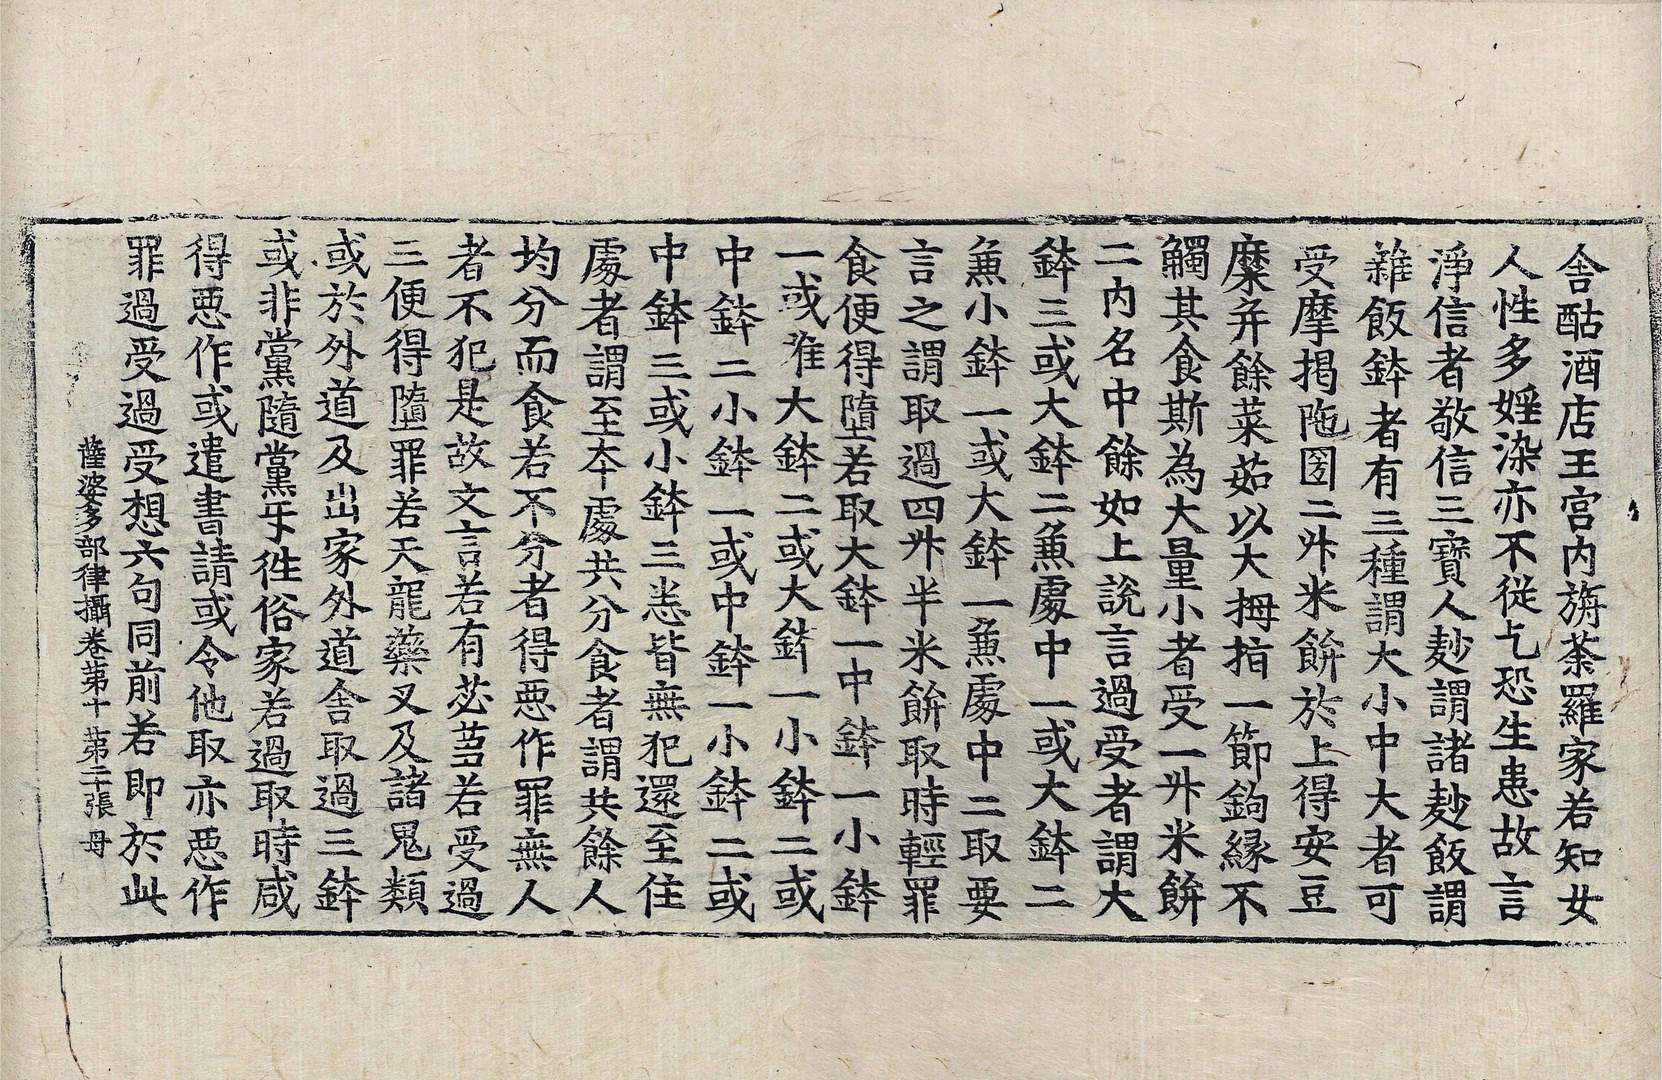 舍酤酒店王宮內旃荼羅家若知女
人性多婬染亦不從乞恐生患故言
淨信者敬信三寶人麨謂諸麨飯謂
雜飯鉢者有三種謂大小中大者可
受摩揭陁國二升米餅於上得安豆
糜并餘菜茹以大拇指一節鉤緣不
觸其食斯為大量小者受一升米餅
二內名中餘如上說言過受者謂大
鉢三或大鉢二兼處中一或大鉢二
兼小鉢一或大鉢一兼處中二取要
言之謂取過四升半米餅取時輕罪
食便得墮若取大鉢一中鉢一小鉢
一或唯大鉢二或大鉢一小鉢二或
中鉢二小鉢一或中鉢一小鉢二或
中鉢三或小鉢三悉皆無犯還至住
處者謂至本處共分食者謂共餘人
均分而食若不分者得惡作罪無人
者不犯是故文言若有苾芻若受過
三便得墮罪若天龍藥叉及諸鬼類
或於外道及出家外道舍取過三鉢
或非黨隨黨乎往俗家若過取時咸
得惡作或遣書請或令他取亦惡作
罪過受過受想六句同前若即於此
薩婆多部律攝卷第十 第二十張 母